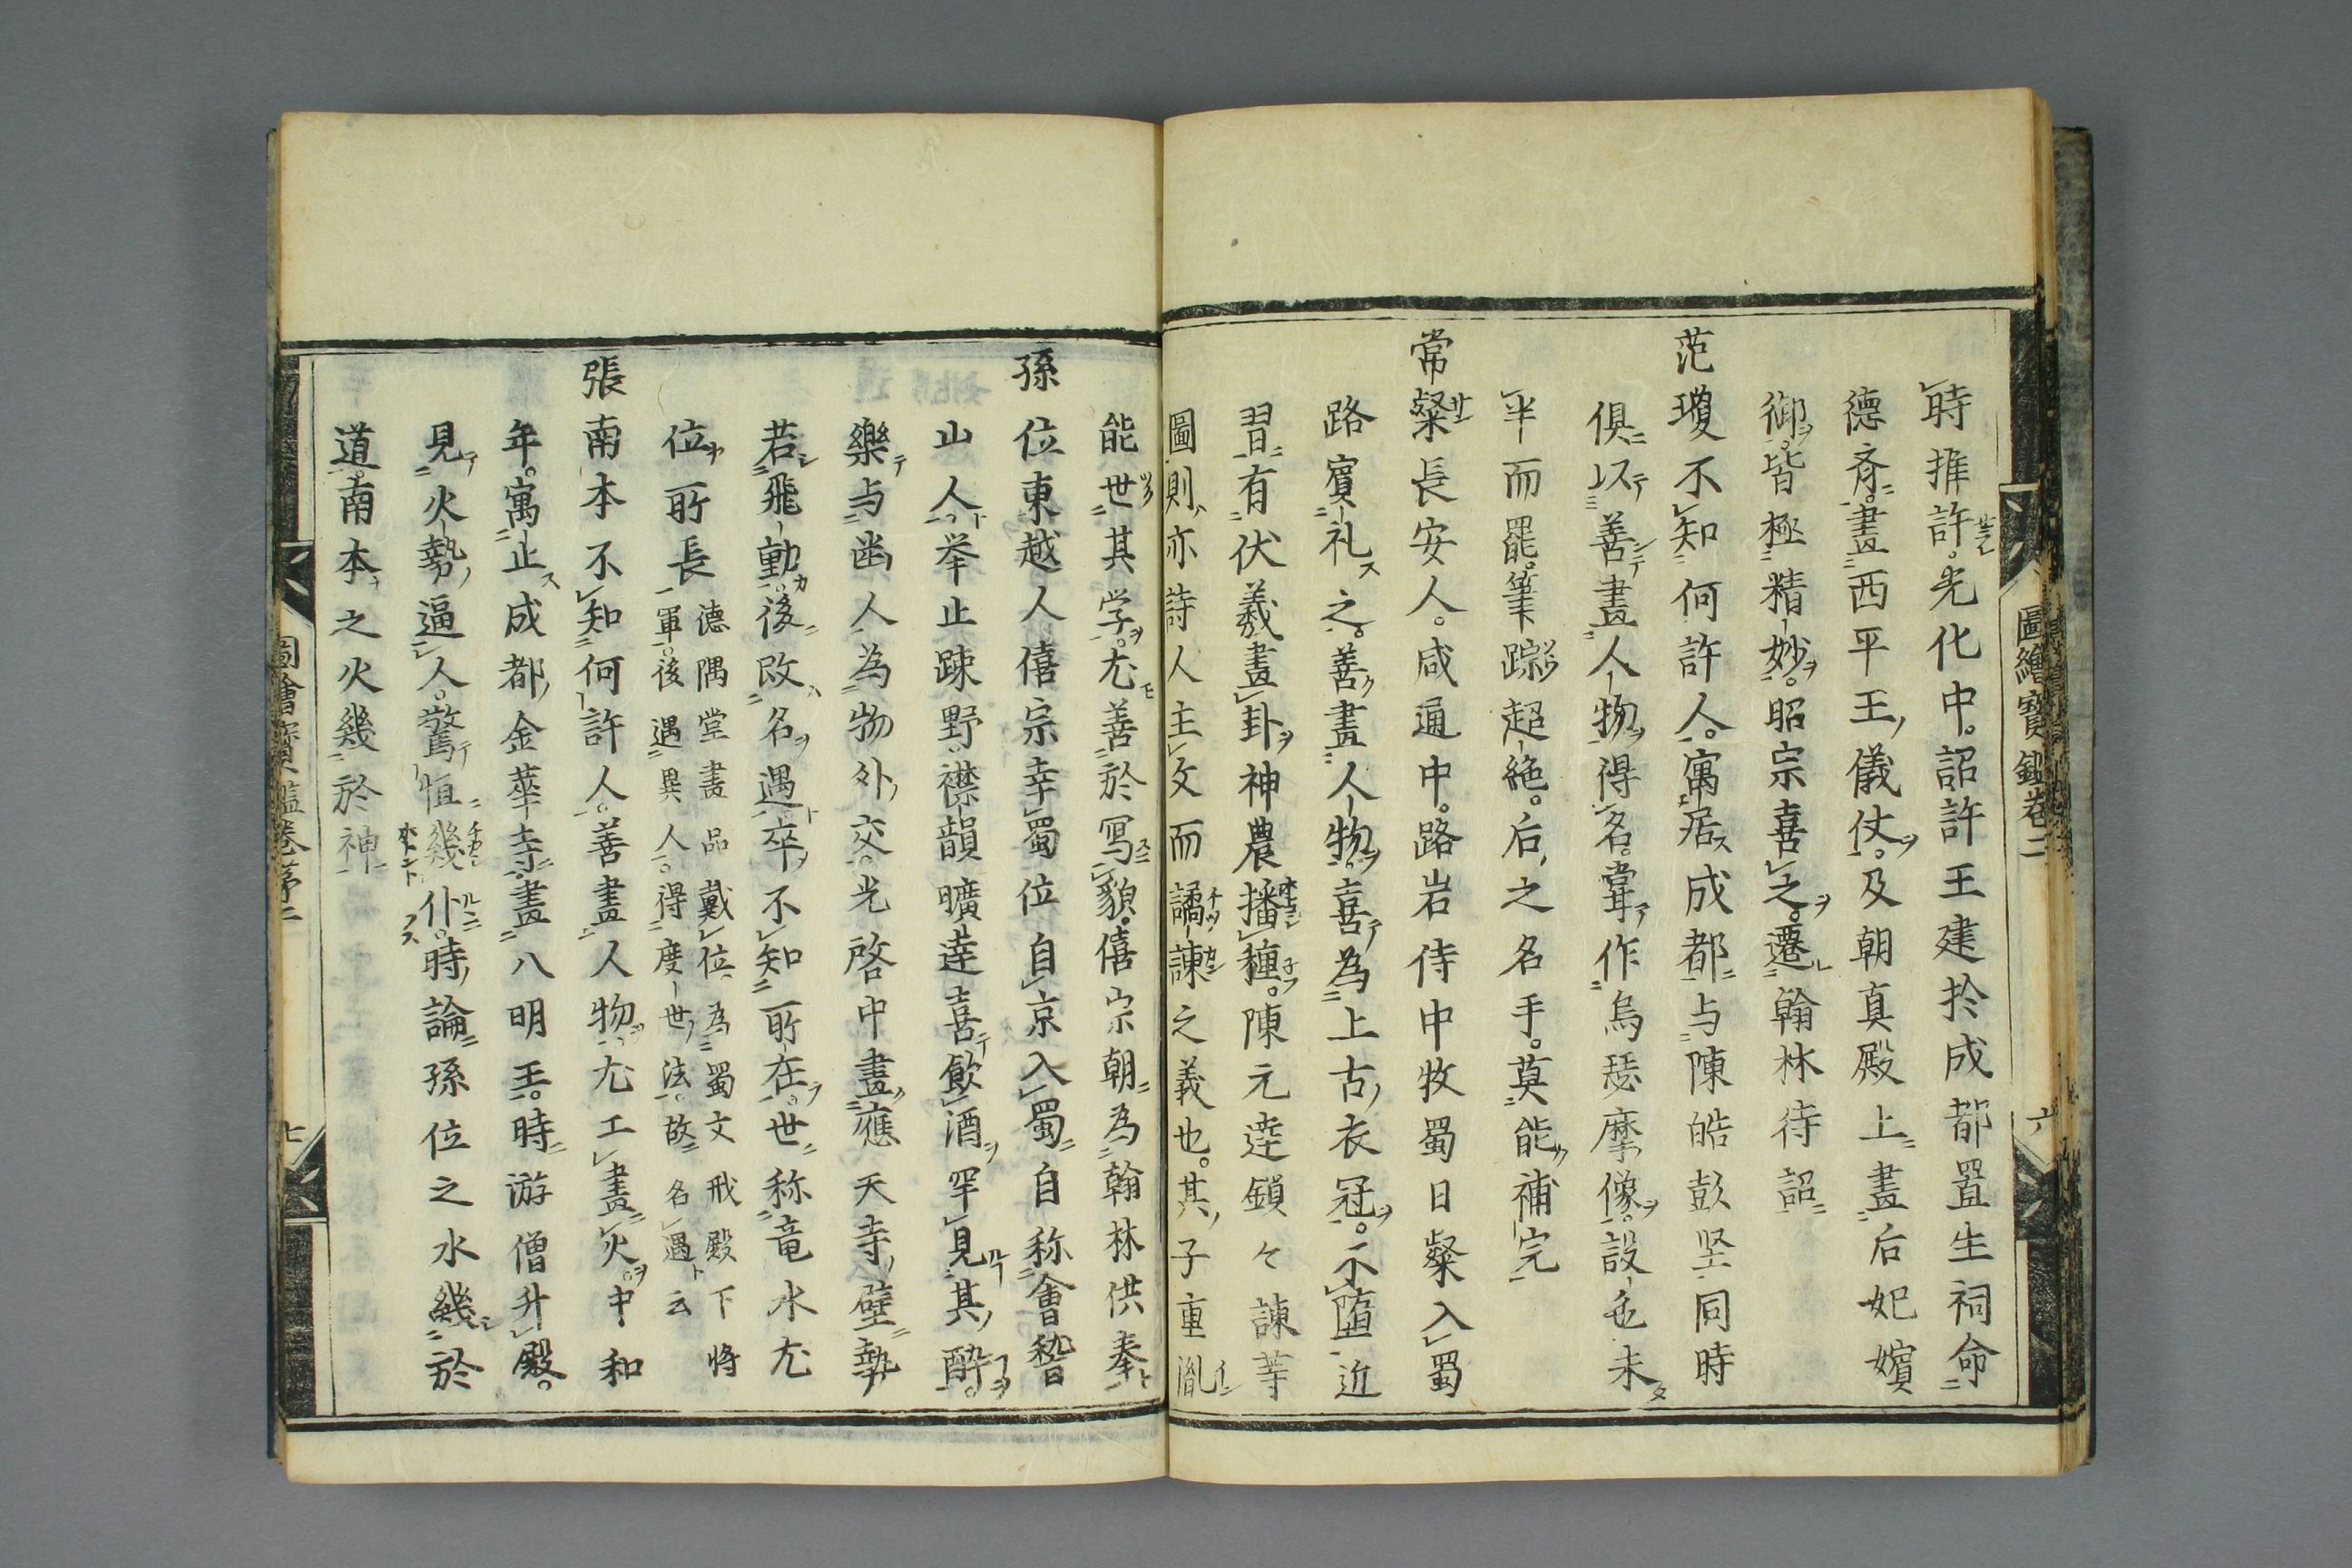 圖繪寶鑑卷二
六
時推許。光化中。詔許王建於成都置生祠命
德斎。畫西平王儀仗。及朝真殿上畫后妃嬪
御。皆極精妙。昭宗喜之。遷翰林待詔
范瓊不知何許人。寓居成都与陳皓彭坚同時
俱以善畫人物得名。嘗作烏瑟摩像。設色未
半而罷。筆踪超絶。后之名手。莫能補完
常粲長安人。咸通中。路岩侍中牧蜀日粲入蜀
路賓礼之。善畫人物。喜為上古衣冠。不堕近
習有伏羲畫卦神農播種。陳元達鎖々諫等
圖則亦詩人主文而譎諫之義也。其子重胤
能世其学。尤善於写貌。僖宗朝為翰林供奉
孫位東越人僖宗幸蜀位自京入蜀自称會稽
山人挙止踈野襟韻曠達喜飲酒罕見其酔。
樂与幽人為物外交。光啓中畫應天寺壁勢
若飛動。後改名遇卒不知所在。世称竜水尤
位所長德隅堂畫品戴位為蜀文成殿下将
軍。後遇異人。得度世法。故名遇云
張南本不知何許人。善畫人物。尤工畫火。中和
年。寓止成都金華寺。畫八明王。時游僧升殿。
見火勢逼人。驚怛幾仆。時論孫位之水幾於
道。南本之火幾於神
圖繪寳鑑卷第二
七